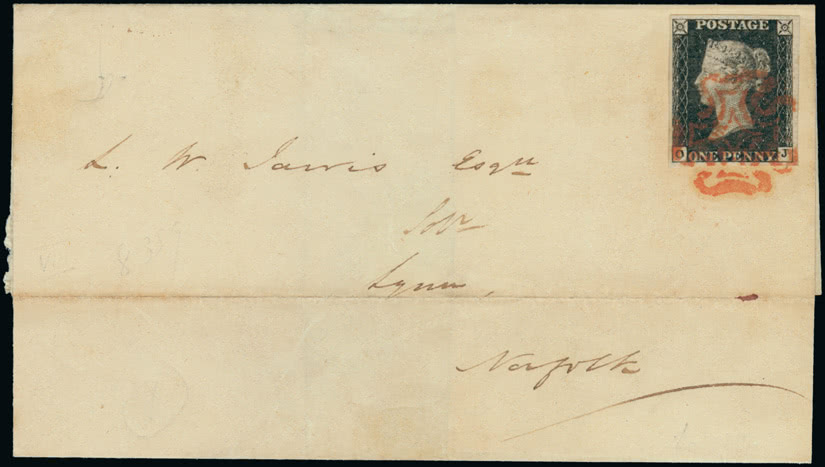 POSTAGE
O ONE PENNY J
L. W. Jarvis Esqre
Solr
Lynn,
Norfolk